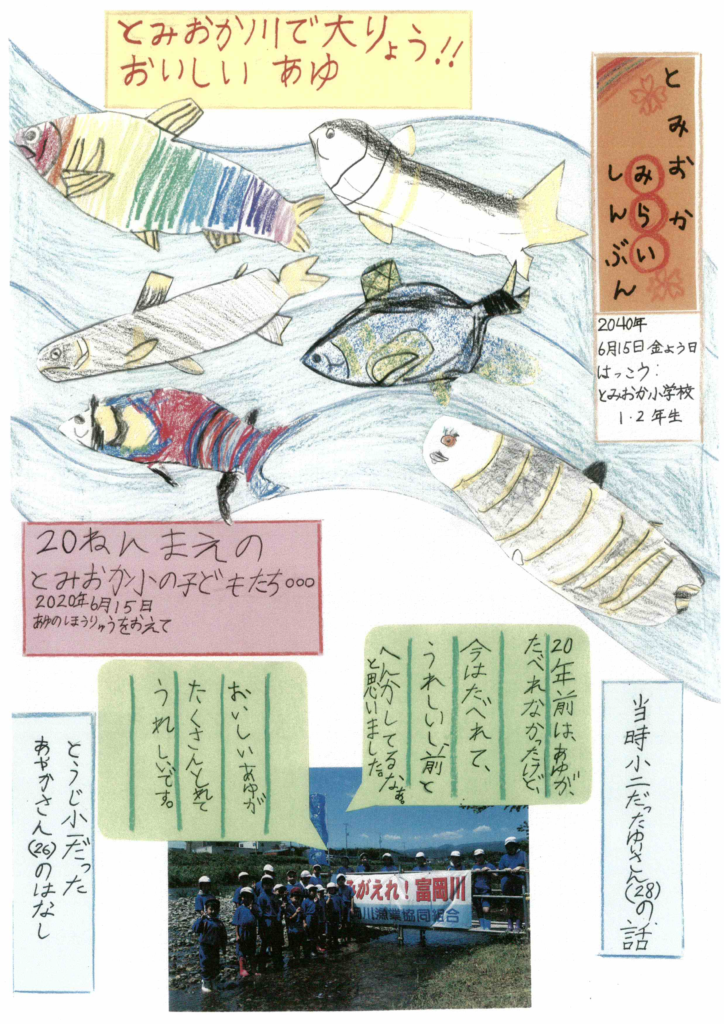 とみおか川で大りょう!!
おいしい あゆ
とみおか
みらい
しんぶん
2040年
6月15日金よう日
はっこう:
とみおか小学校
1・2年生
20ねんまえの
とみおか小の子どもたち…
2020年6月15日
あゆのほうりゅうをおえて
20年前は、あゆが、
たべれなかったけど、
今はたべれて、
うれしいし、前と
へんかしてるなぁ
と思いました。
当時小二だったゆいさん(28)の話
おいしいあゆが
たくさんとれて
うれしいです。
とうじ小一だった
あやかさん(26)のはなし
みがえれ!富岡川
岡川漁業協同組合